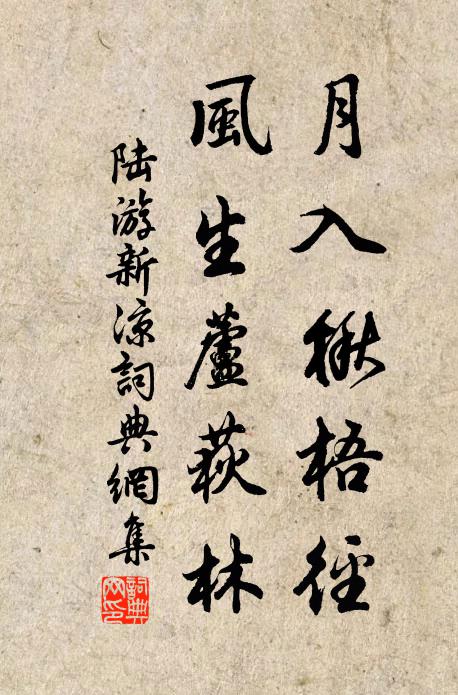 月入楸梧徑
風生蘆荻林
陆游新涼詞典網集
詞典